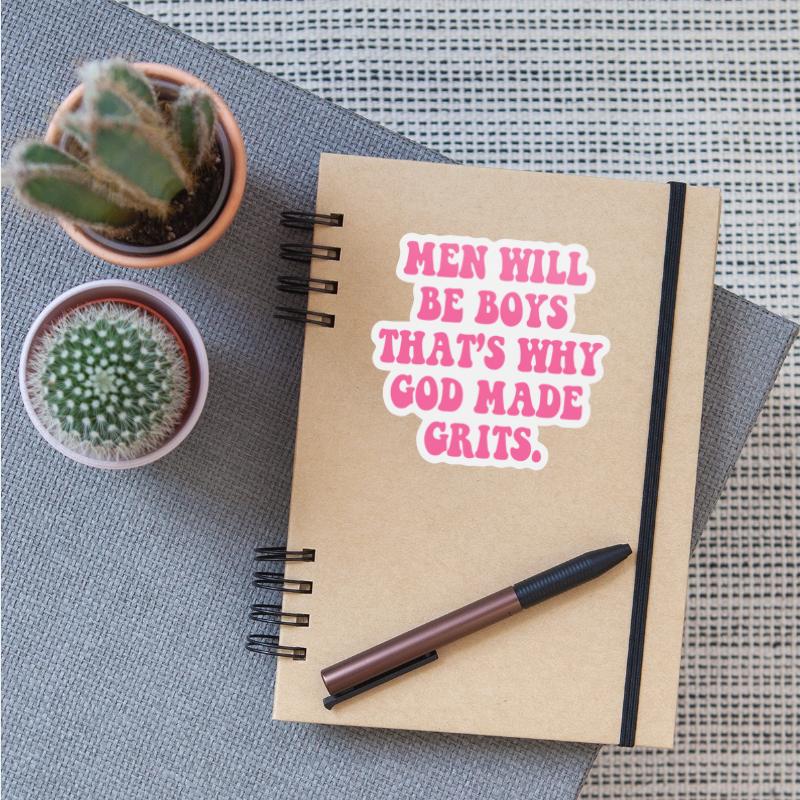 MEN WILL
BE BOYS
THAT'S WHY
GOD MADE
GRITS.